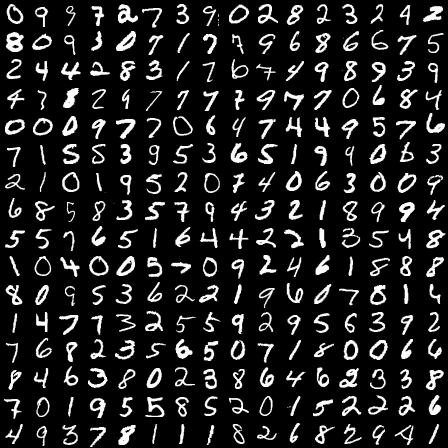 0 9 9 7 2 7 3 9 0 2 8 2 3 2 4 2
8 0 9 3 0 7 1 7 7 9 6 8 6 6 7 5
2 4 4 2 8 3 1 7 6 7 4 9 8 9 3 9
4 3 8 2 9 7 7 7 7 9 7 7 0 6 8 4
0 0 0 9 7 7 0 6 4 7 4 4 9 5 7 6
7 1 5 5 3 9 5 3 6 5 1 9 9 0 6 3
2 1 0 1 9 5 2 0 7 4 0 6 3 0 0 9
6 8 5 8 3 5 7 9 4 3 2 1 8 9 9 4
5 5 7 6 5 1 6 4 4 2 2 1 3 5 4 8
1 0 4 0 0 5 7 0 9 2 4 6 1 8 8 8
8 0 9 5 3 6 2 2 1 9 6 0 7 8 1 6
1 4 7 7 3 2 5 5 9 2 9 5 6 3 9 2
7 6 8 2 3 5 6 5 0 7 1 8 0 0 6 6
8 4 6 3 8 0 2 3 8 6 4 6 2 3 3 8
7 0 1 9 5 5 8 5 2 0 1 5 2 2 2 6
4 9 3 7 8 1 1 1 8 2 6 8 2 9 4 1